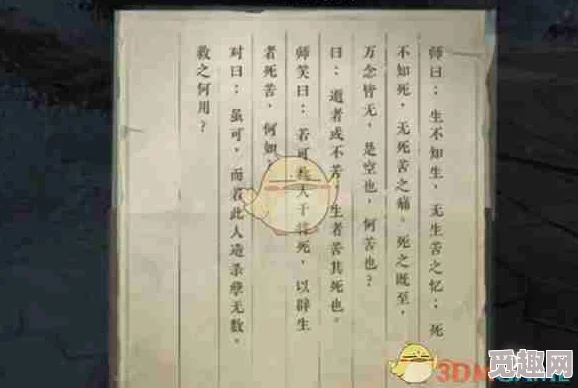 师曰：生不知生，无生苦之忆；死
不知死，无死苦之痛。死之既至，
万念皆无，是空也，何苦也？
曰：逝者或不苦，生者苦其死也。
师笑曰：若可救人于将死，以辟生
者死苦，何如？
对曰：虽可，而若此人造杀孽无数。
救之何用？
3DM
觅趣网